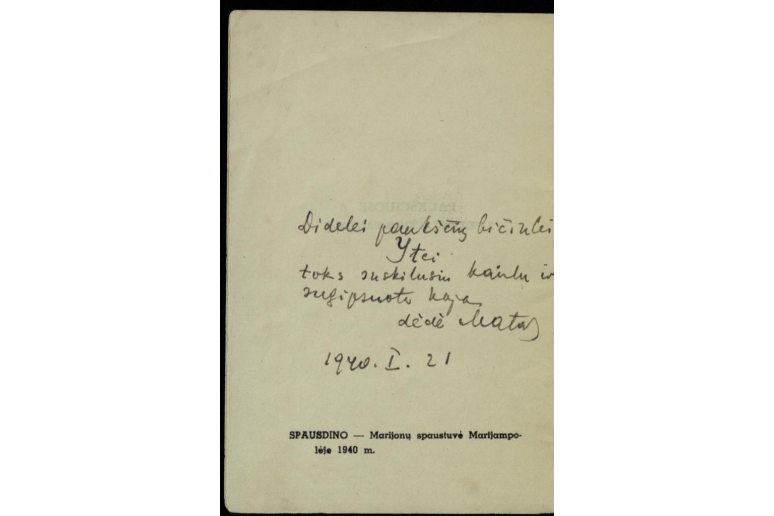 Didelei paukščių bičiulei
Ytei
toks suskilusiu kaulu ir
sugipsuota koja
dėdė Matas
1940. I. 21
SPAUSDINO — Marijonų spaustuvė Marijampo-
lėje 1940 m.